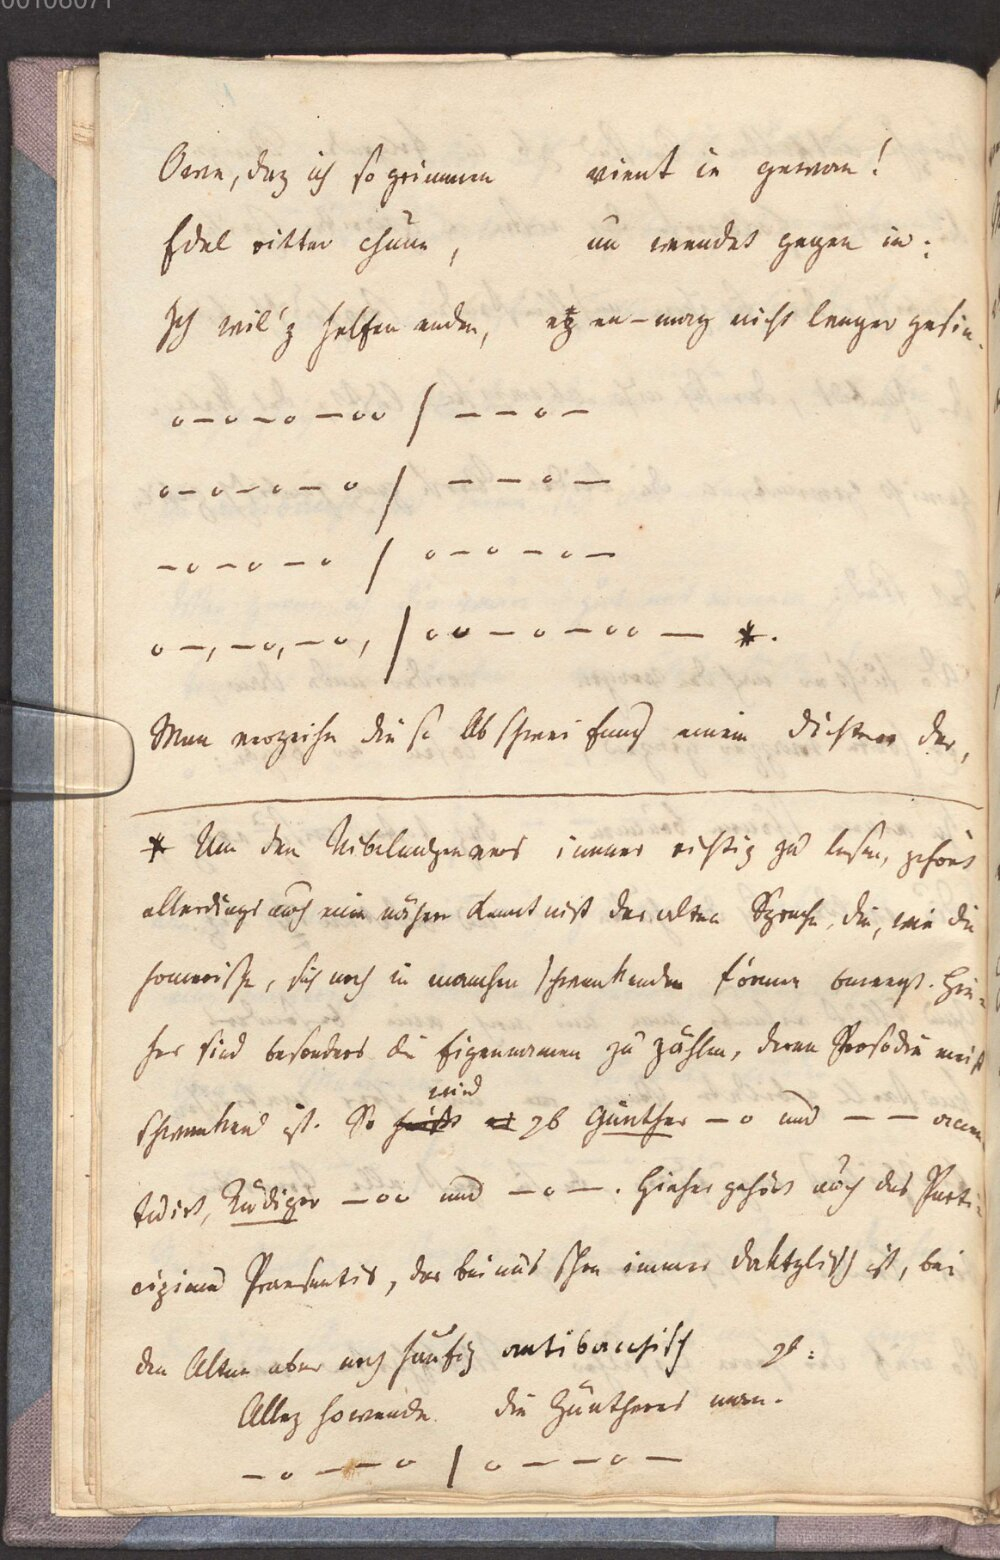 00108071
Owe, daz ich so grimmen vient ie gewan!
Edel ritter chüne, nu wendet gegen in:
Ich wil'z helfen enden, ez en-mag nicht langer gesin.
o – o – o – o o / – – o –
o – o – o – o / – – o –
– o – o – o / o – o – o –
o –, – o, – o, / o o – o – o o – *.
Man verzeihe diese Abschweifung einem Dichter der,
* Um den Nibelungenvers immer richtig zu lesen, gehört
allerdings auch eine nähere Kenntniß der alten Sprache, die, wie die
homerische, sich noch in manchen schwankenden Formen bewegt. Hie-
her sind besonders die Eigennamen zu zählen, deren Prosodie meist
schwankend ist. So wird zb Günther – o und – – accen
tuirt, Rüdiger – o o und – o –. Hieher gehört auch das Parti-
cipium Praesentis, das bei uns schon immer daktylisch ist, bei
den Alten aber noch häufig antibacchisch zb:
Allez howende die Güntheres man.
– o – – o / o – – o –